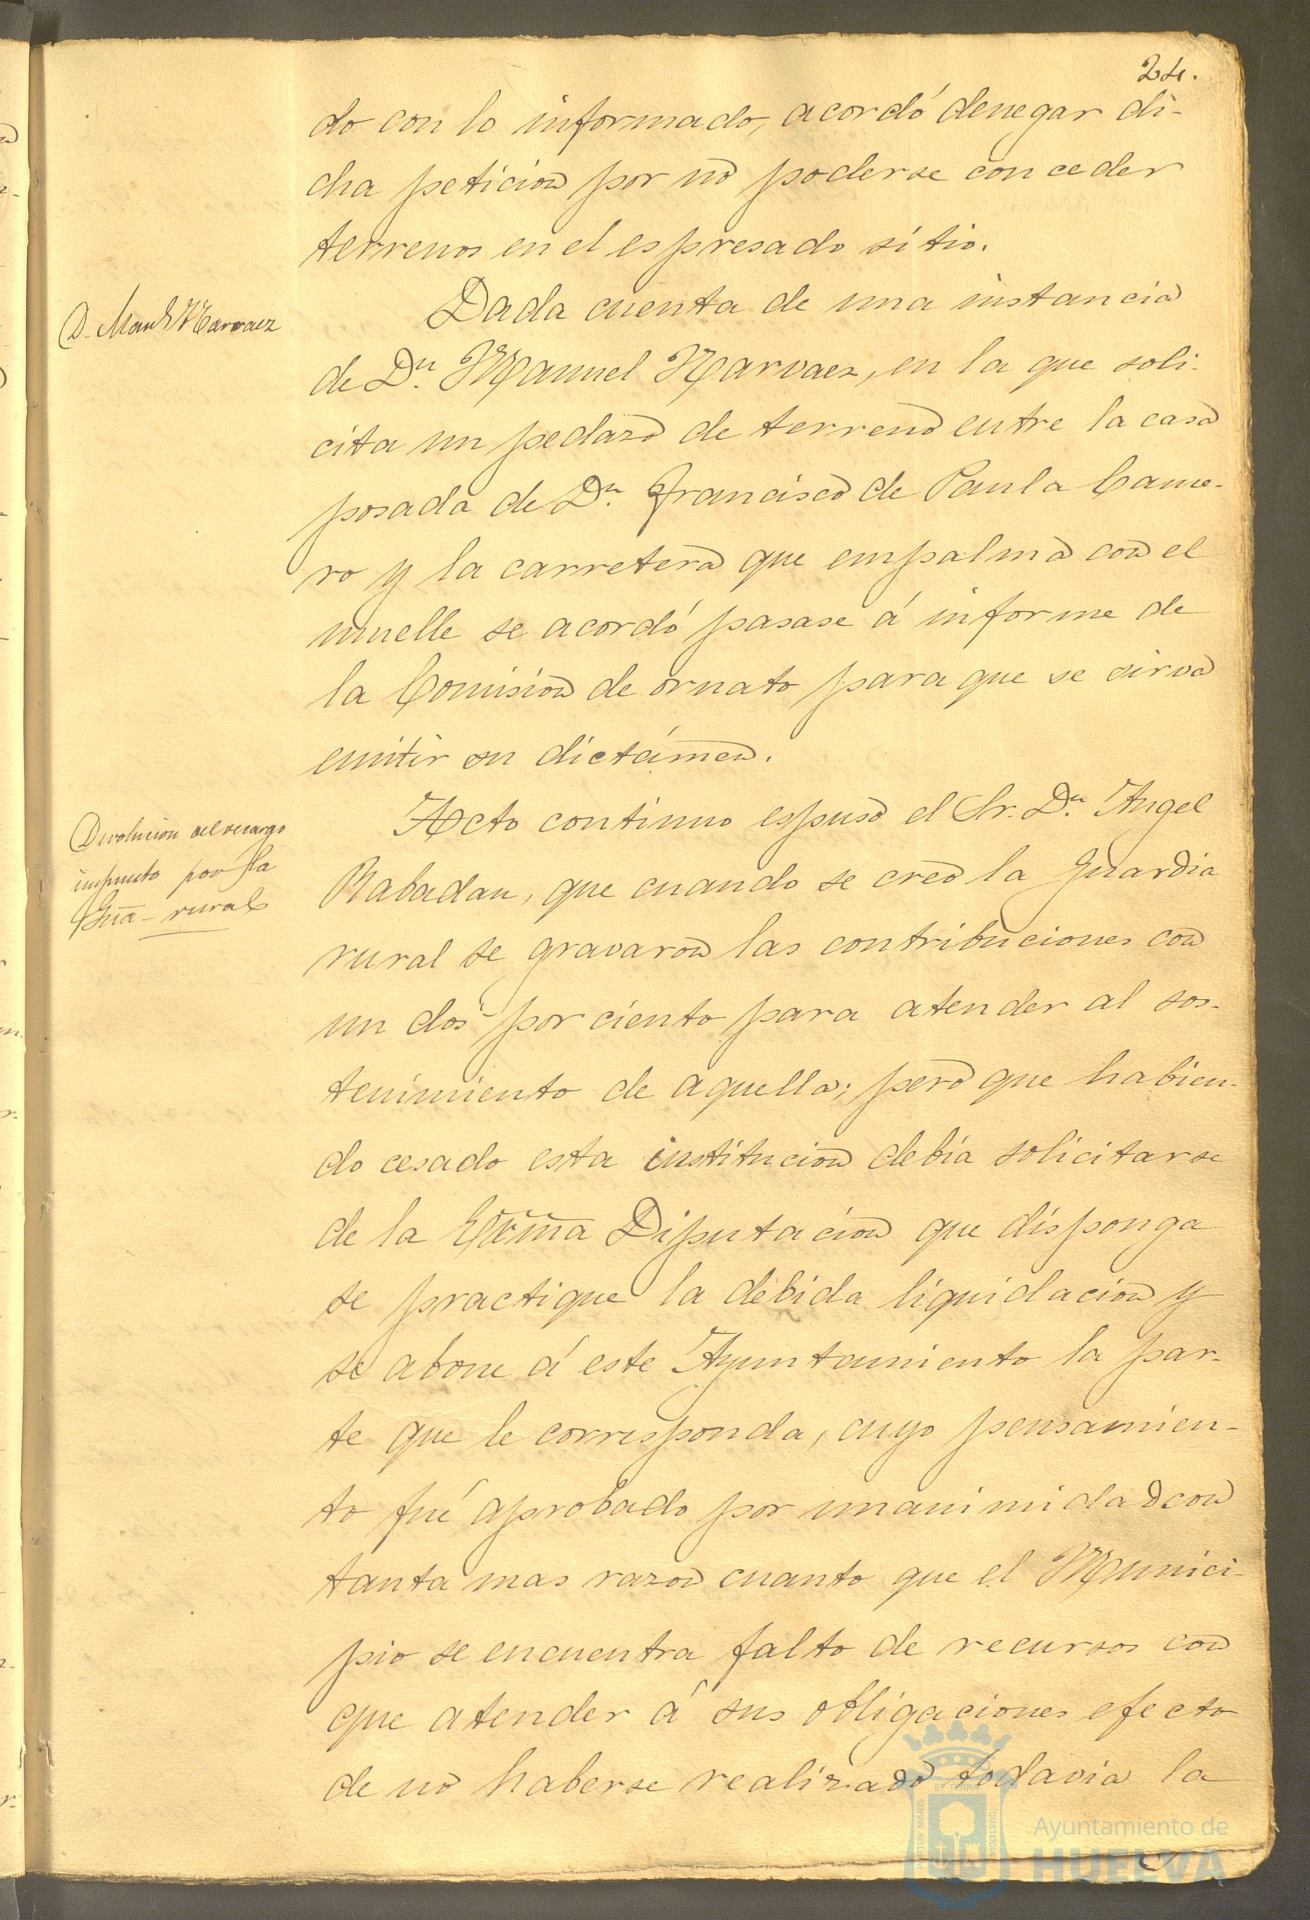 24.
do con lo informado, acordó denegar di-
cha peticion por no poderse conceder
terrenos en el espresado sitio.
D. Manl Narvaez
Dada cuenta de una instancia
de Dn. Manuel Narvaez, en la que soli-
cita un pedazo de terreno entre la casa
posada de Dn. Francisco de Paula Came-
ro y la carretera que empalma con el
muelle se acordó pasase á informe de
la Comision de ornato para que se sirva
emitir su dictámen.
Devolucion del recargo
impuesto por la
Gũa rural
Acto continuo espuso el Sr. Dn. Angel
Rabadan, que cuando se creó la Guardia
rural se gravaron las contribuciones con
un dos por ciento para atender al sos-
tenimiento de aquella; pero que habien-
do cesado esta institucion debia solicitarse
de la Excma Diputacion que disponga
se practique la debida liquidacion y
se abone á este Ayuntamiento la par-
te que le corresponda, cuyo pensamien-
to fué aprobado por unanimidad con
tanta mas razon cuanto que el Munici-
pio se encuentra falto de recursos con
que atender á sus obligaciones efecto
de no haberse realizado todavia la
PORTUS MARIS ET TERRAE CUSTODIA
Ayuntamiento de
HUELVA